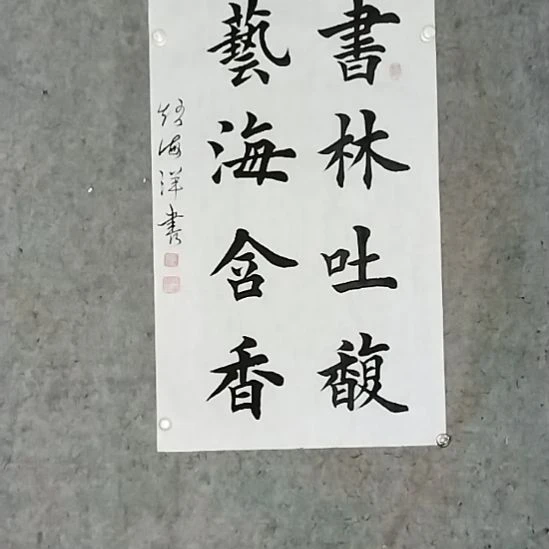 書林吐馥
藝海含香
趙海洋書